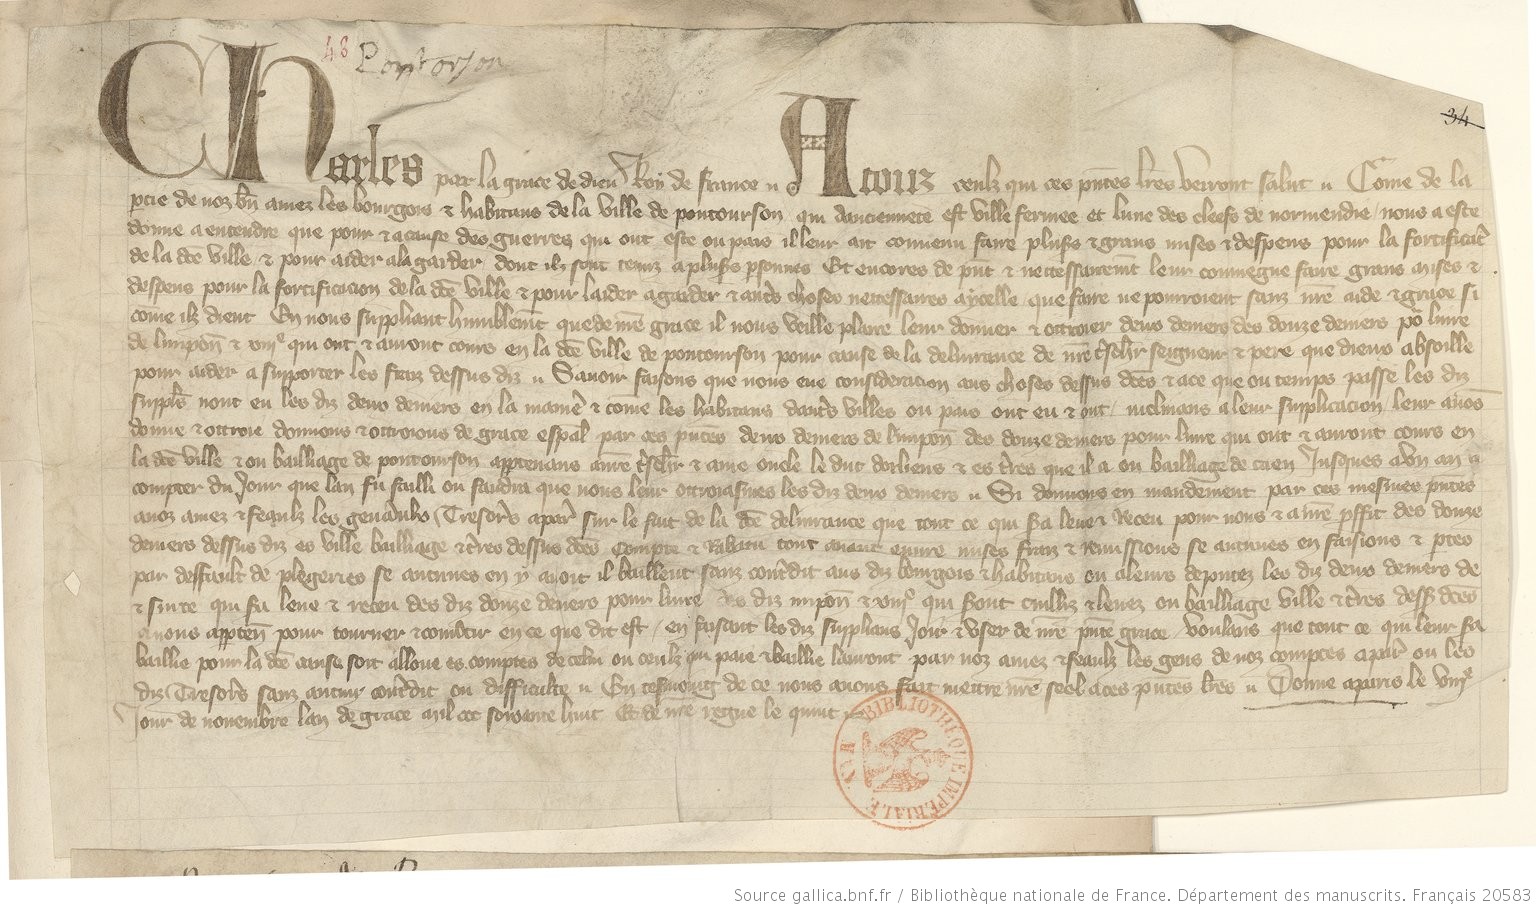 48 Pontorson
34
Charles par la grace de dieu Roy de france A touz ceulz qui ces pñtes lr̃es verront salut Com̃e de la
ptie de noz bñ amez les bourgois & habitans de la ville de pontourson qui dancienneté est ville fermee et lune des clefs de normendie nous a este
donne a entendre que pour & a cause des guerres qui ont este ou pais il leur ait convenu faire plus̃s & grans mises & despens pour la fortificac̃
de la dc̃e ville & pour aider a la garder dont ilz sont tenuz a plus̃s p̃sonnes Et encores de pñt & neccessairem̃t leur conviegne faire grans mises &
despens pour la fortificacion de la dc̃e ville & pour laider a garder & autr̃s choses neccessaires a ycelle que faire ne pourroient sanz nr̃e aide & grace si
com̃e ilz dient En nous suppliant humblem̃t que de nr̃e grace il nous veille plaire leur donner & ottroier deux deniers des douze deniers po livre
de limpoñ & xiiiᵉ qui ont & auront cours en la dc̃e ville de pontourson pour cause de la delivrance de nr̃e tr̃sch̃r seigneur & pere que dieux absoille
pour aider a supporter les fraiz dessus diz Savoir faisons que nous eue consideracion aus choses dessus dc̃es & a ce que ou temps passe les diz
suppl̃s nont eu les diz deux deniers en la manier̃ & com̃e les habitans dautr̃s villes ou pais ont eu & ont inclinans a leur supplicacion leur avõs
donne & ottroie donnons & ottroions de grace esp̃al par ces pñtes deux deniers de limpoñ des douze deniers pour livre qui ont & auront cours en
la dc̃e ville & ou bailliage de pontourson appartenans a nr̃e tr̃sch̃r & ame oncle le duc dorliens & es tr̃res que il a ou bailliage de caen Jusques a un an a
compter du Jour que lan fu failli ou faudra que nous leur ottroiasmes les diz deux deniers Si donnons en mandement par ces mesmes pñtes
a noz amez & feaulz les gen̄aulx Tresorĩs a parĩs sur le fait de la dc̃e delivrance que tout ce qui s̃a leve & Receu pour nous & a nr̃e p̃ffit des douze
deniers dessus diz es ville bailliage & tr̃res dessus dc̃es Compte & Rabatu tout avant euvre mises fraiz & remissions se aucunes en faisions & p̃tes
par deffault de plegeries se aucunes en y avoit il baillent sanz contr̃dit aus diz bourgois & habitans ou a leurs deputez les diz deux deniers de
& sur ce qui s̃a leve & receu des diz douze deniers pour livre des diz impoñ & xiiiᵉ qui s̃ont cuilliz & levez ou bailliage ville & tr̃res dess̃ dc̃es
a nous apparteñ pour tourner & convr̃tir en ce que dit est en faisant les diz supplians Joir & user de nr̃e pñte grace voulans que tout ce qui leur s̃a
baillie pour la dc̃e cause soit alloue es comptes de celui ou ceulz qui paie & baillie lauront par noz amez & feaulz les gens de noz comptes a parĩs ou les
diz Tresorĩs sanz aucun contr̃dit ou difficulte En tesmoing de ce nous avons fait mettre nr̃e seel a ces pñtes lr̃es Donne a paris le viiiᵉ
Jour de novembre lan de grace mil ccc soixante huit Et de nr̃e regne le quint
BIBLIOTHÈQUE IMPÉRIALE
Source gallica.bnf.fr / Bibliothèque nationale de France. Département des manuscrits. Français 20583